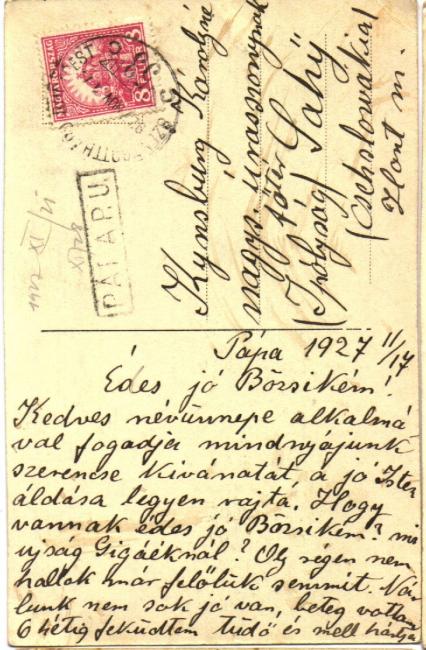 MAGYARORSZÁG
8 FILLÉR 8
PÁPÁRU
Kynsburg Károlyné
nagys. úrasszonynak
főtér Sahÿ
(Ipolyság)
(Csehslowákia)
Hont m.
Pápa 1927 11/17
Édes jó Bözsikém!
Kedves névünnepe alkalmá
val fogadja mindnyájunk
szerencse kivánatát, a jó Isten
áldása legyen rajta. Hogy
vannak édes jó Bözsikém? mi
ujság Gigáéknál? Oly régen nem
hallok már felölük semmit. Ná
lunk nem sok jó van, beteg voltam
6 hétig feküdtem tüdő és mell hártya